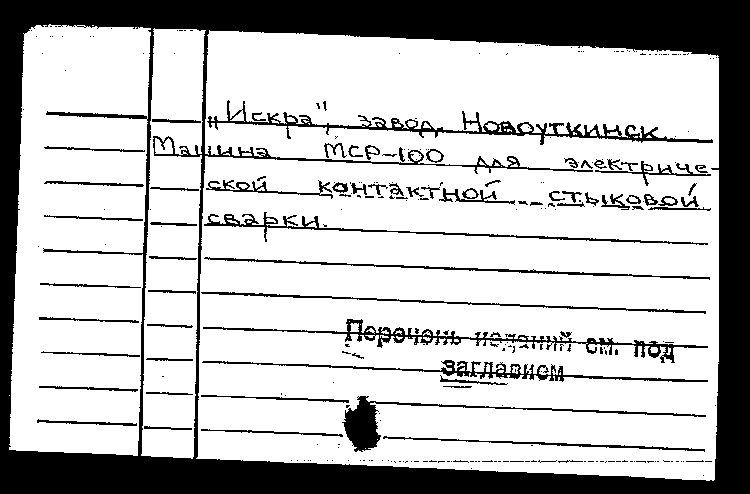 „Искра", завод. Новоуткинск.
Машина МСР-100 для электриче-
ской контактной стыковой
сварки.
Перечень изданий см. под
заглавием